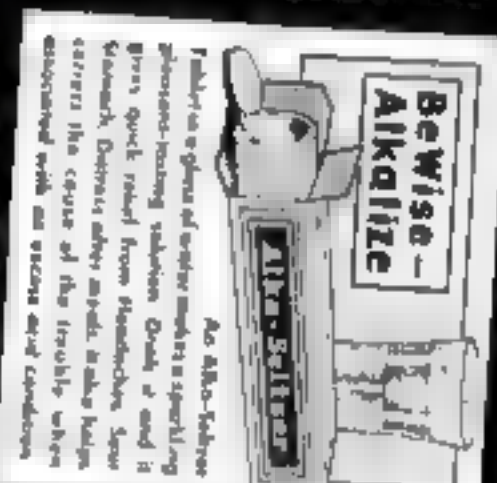 Be Wise–
Alkalize
Alka-Seltzer
An Alka-Seltzer
Tablet in a glass of water makes a sparkling
pleasant-tasting solution Drink it and it
gives quick relief from Headaches Sour
Stomach Distress after meals it also helps
correct the cause of the trouble when
associated with an excess acid condition